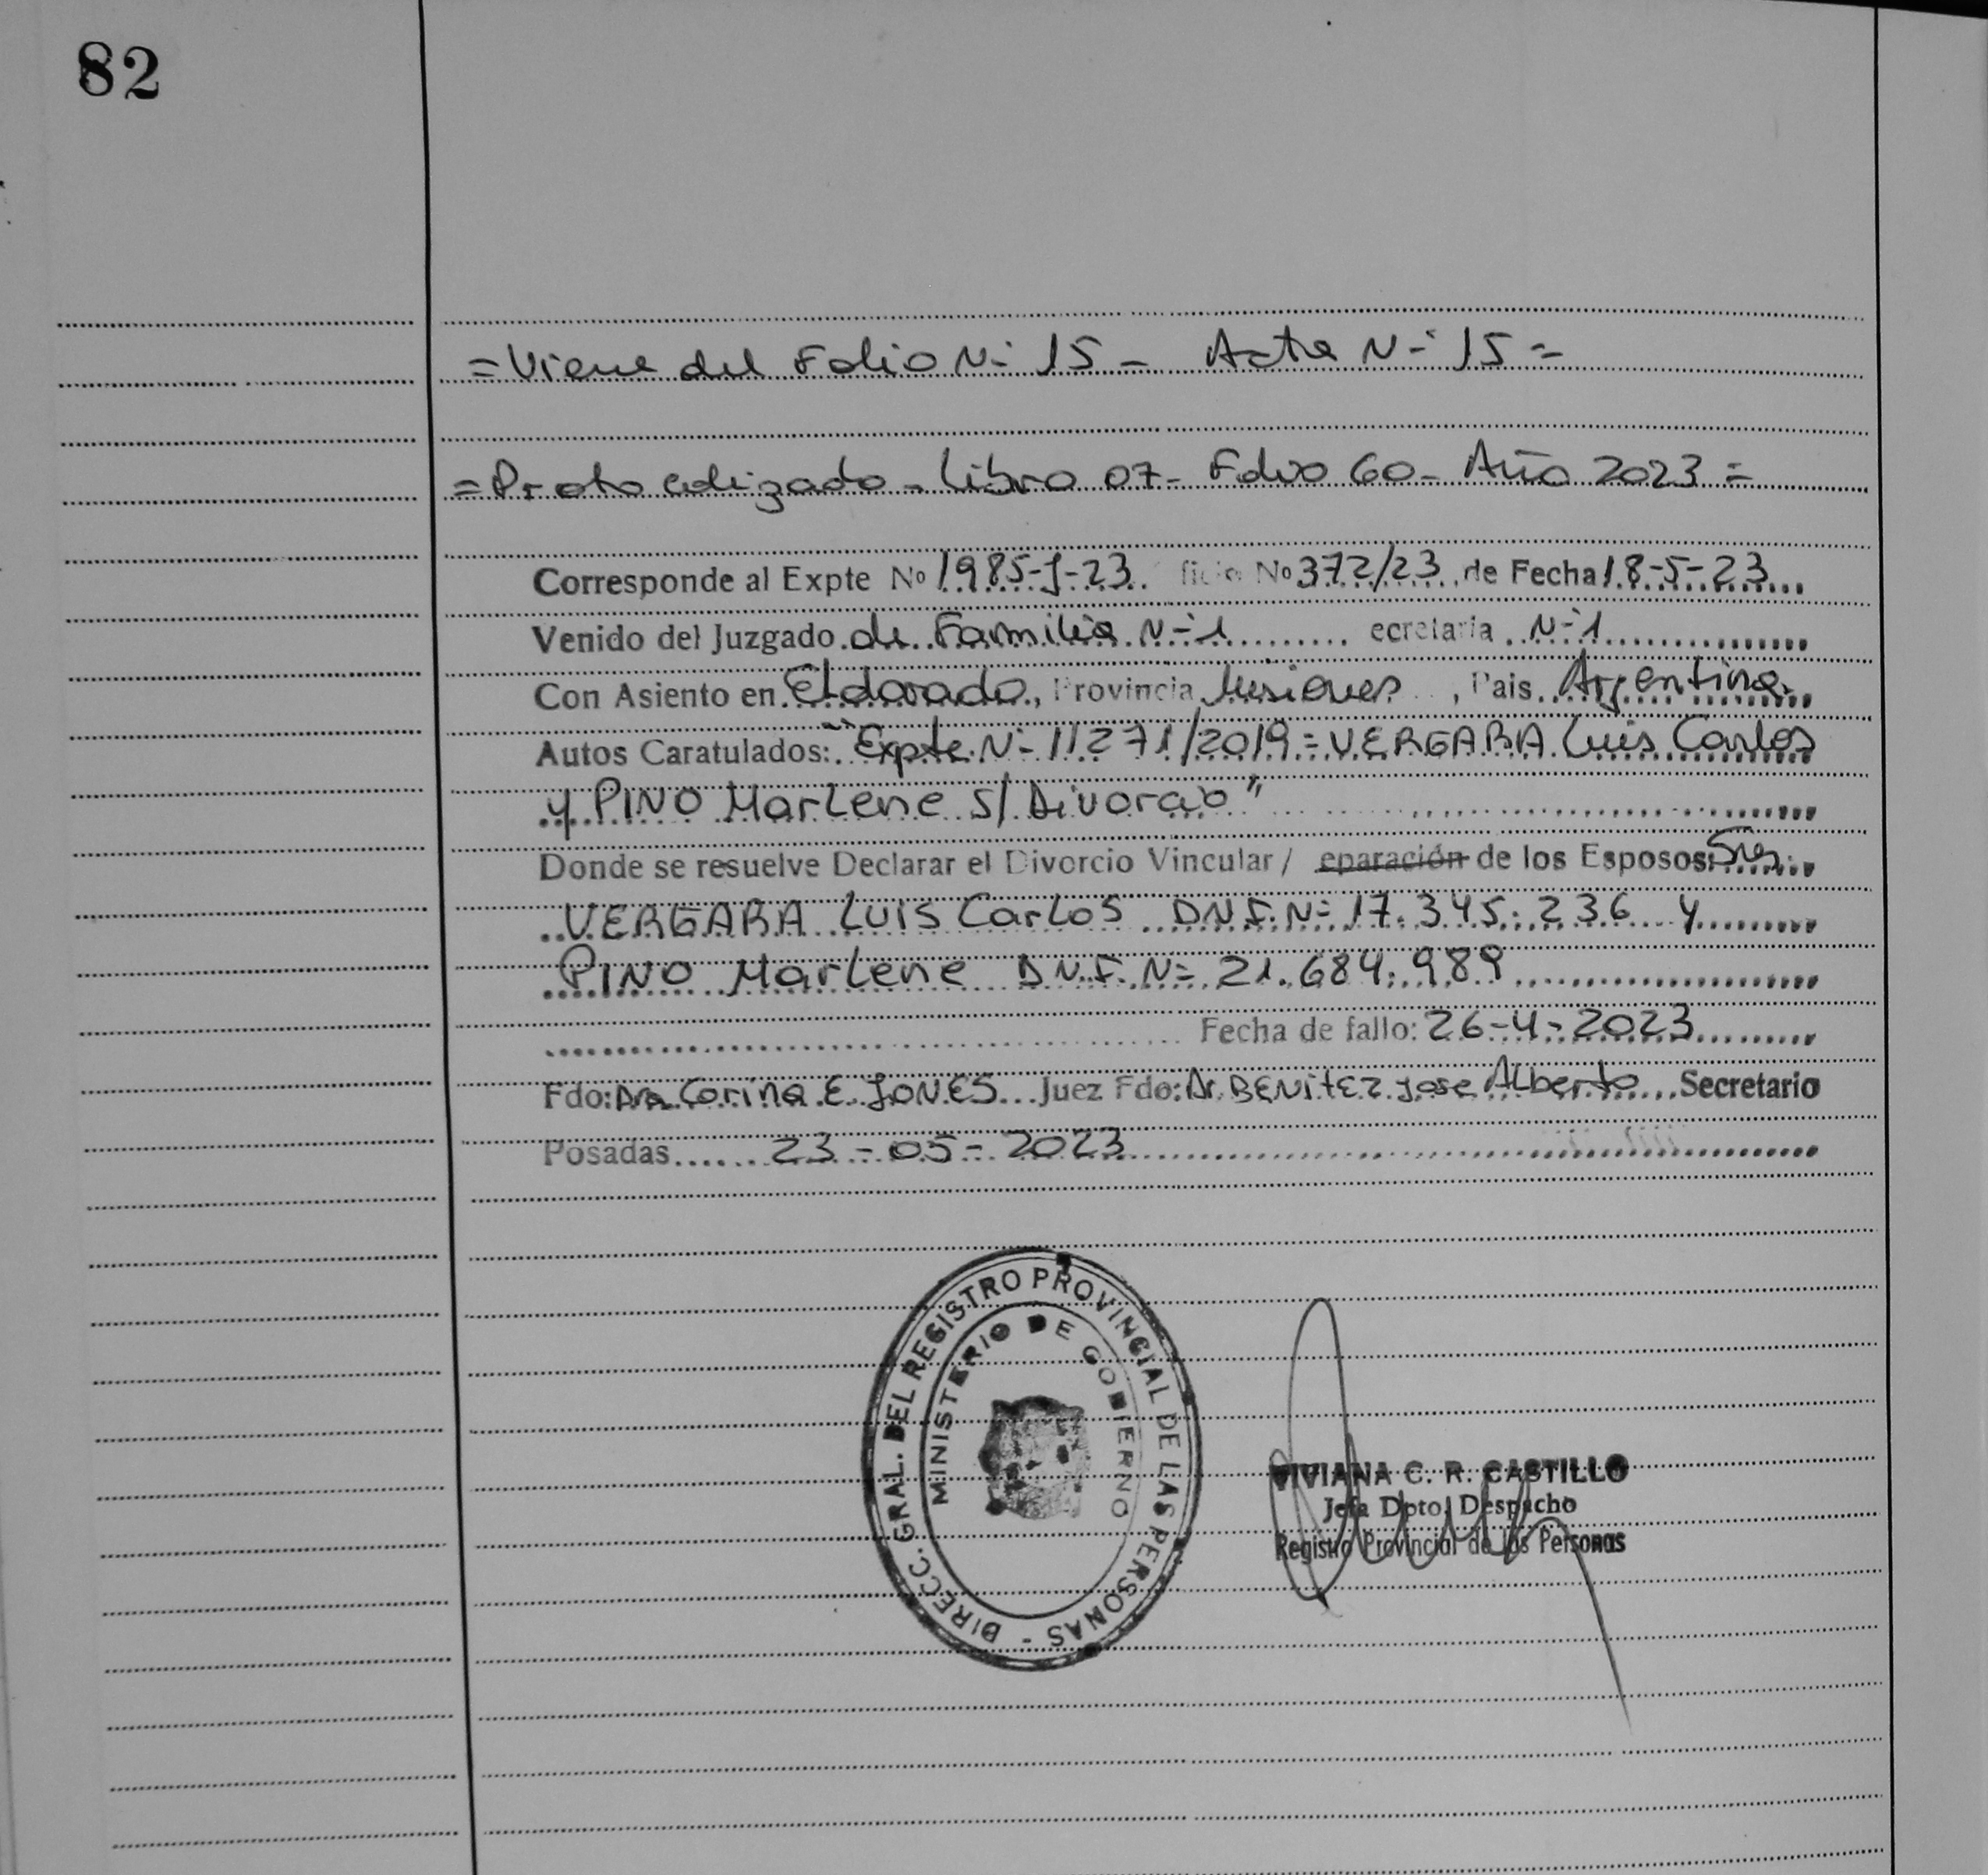 82
= Viene del Folio N-º 15 - Acta N-º 15 =
= Protocolizado - Libro 07 - Folio 60 - Año 2023 =
Corresponde al Expte Nº 1985-J-23. ficio Nº 372/23 de Fecha 18-5-23
Venido del Juzgado de Familia N-º 1 ecretaria N-º 1
Con Asiento en Eldorado, Provincia Misiones, Pais Argentina
Autos Caratulados: "Expte N-º 11271/2019 = VERGARA Luis Carlos
y PINO Marlene S/ Divorcio"
Donde se resuelve Declarar el Divorcio Vincular / eparación de los Esposos: Sres
VERGARA LUIS Carlos D.N.I. N= 17.345.236 y
PINO Marlene D.N.I. N= 21.684.989
Fecha de fallo: 26-4-2023
Fdo: Dra Corina E. JONES Juez Fdo: Dr. BENITEZ Jose Alberto Secretario
Posadas 23-05-2023
DIRECC. GRAL. DEL REGISTRO PROVINCIAL DE LAS PERSONAS -
MINISTERIO DE GOBIERNO
VIVIANA C. R. CASTILLO
Jefa Dpto. Despacho
Registro Provincial de las Personas